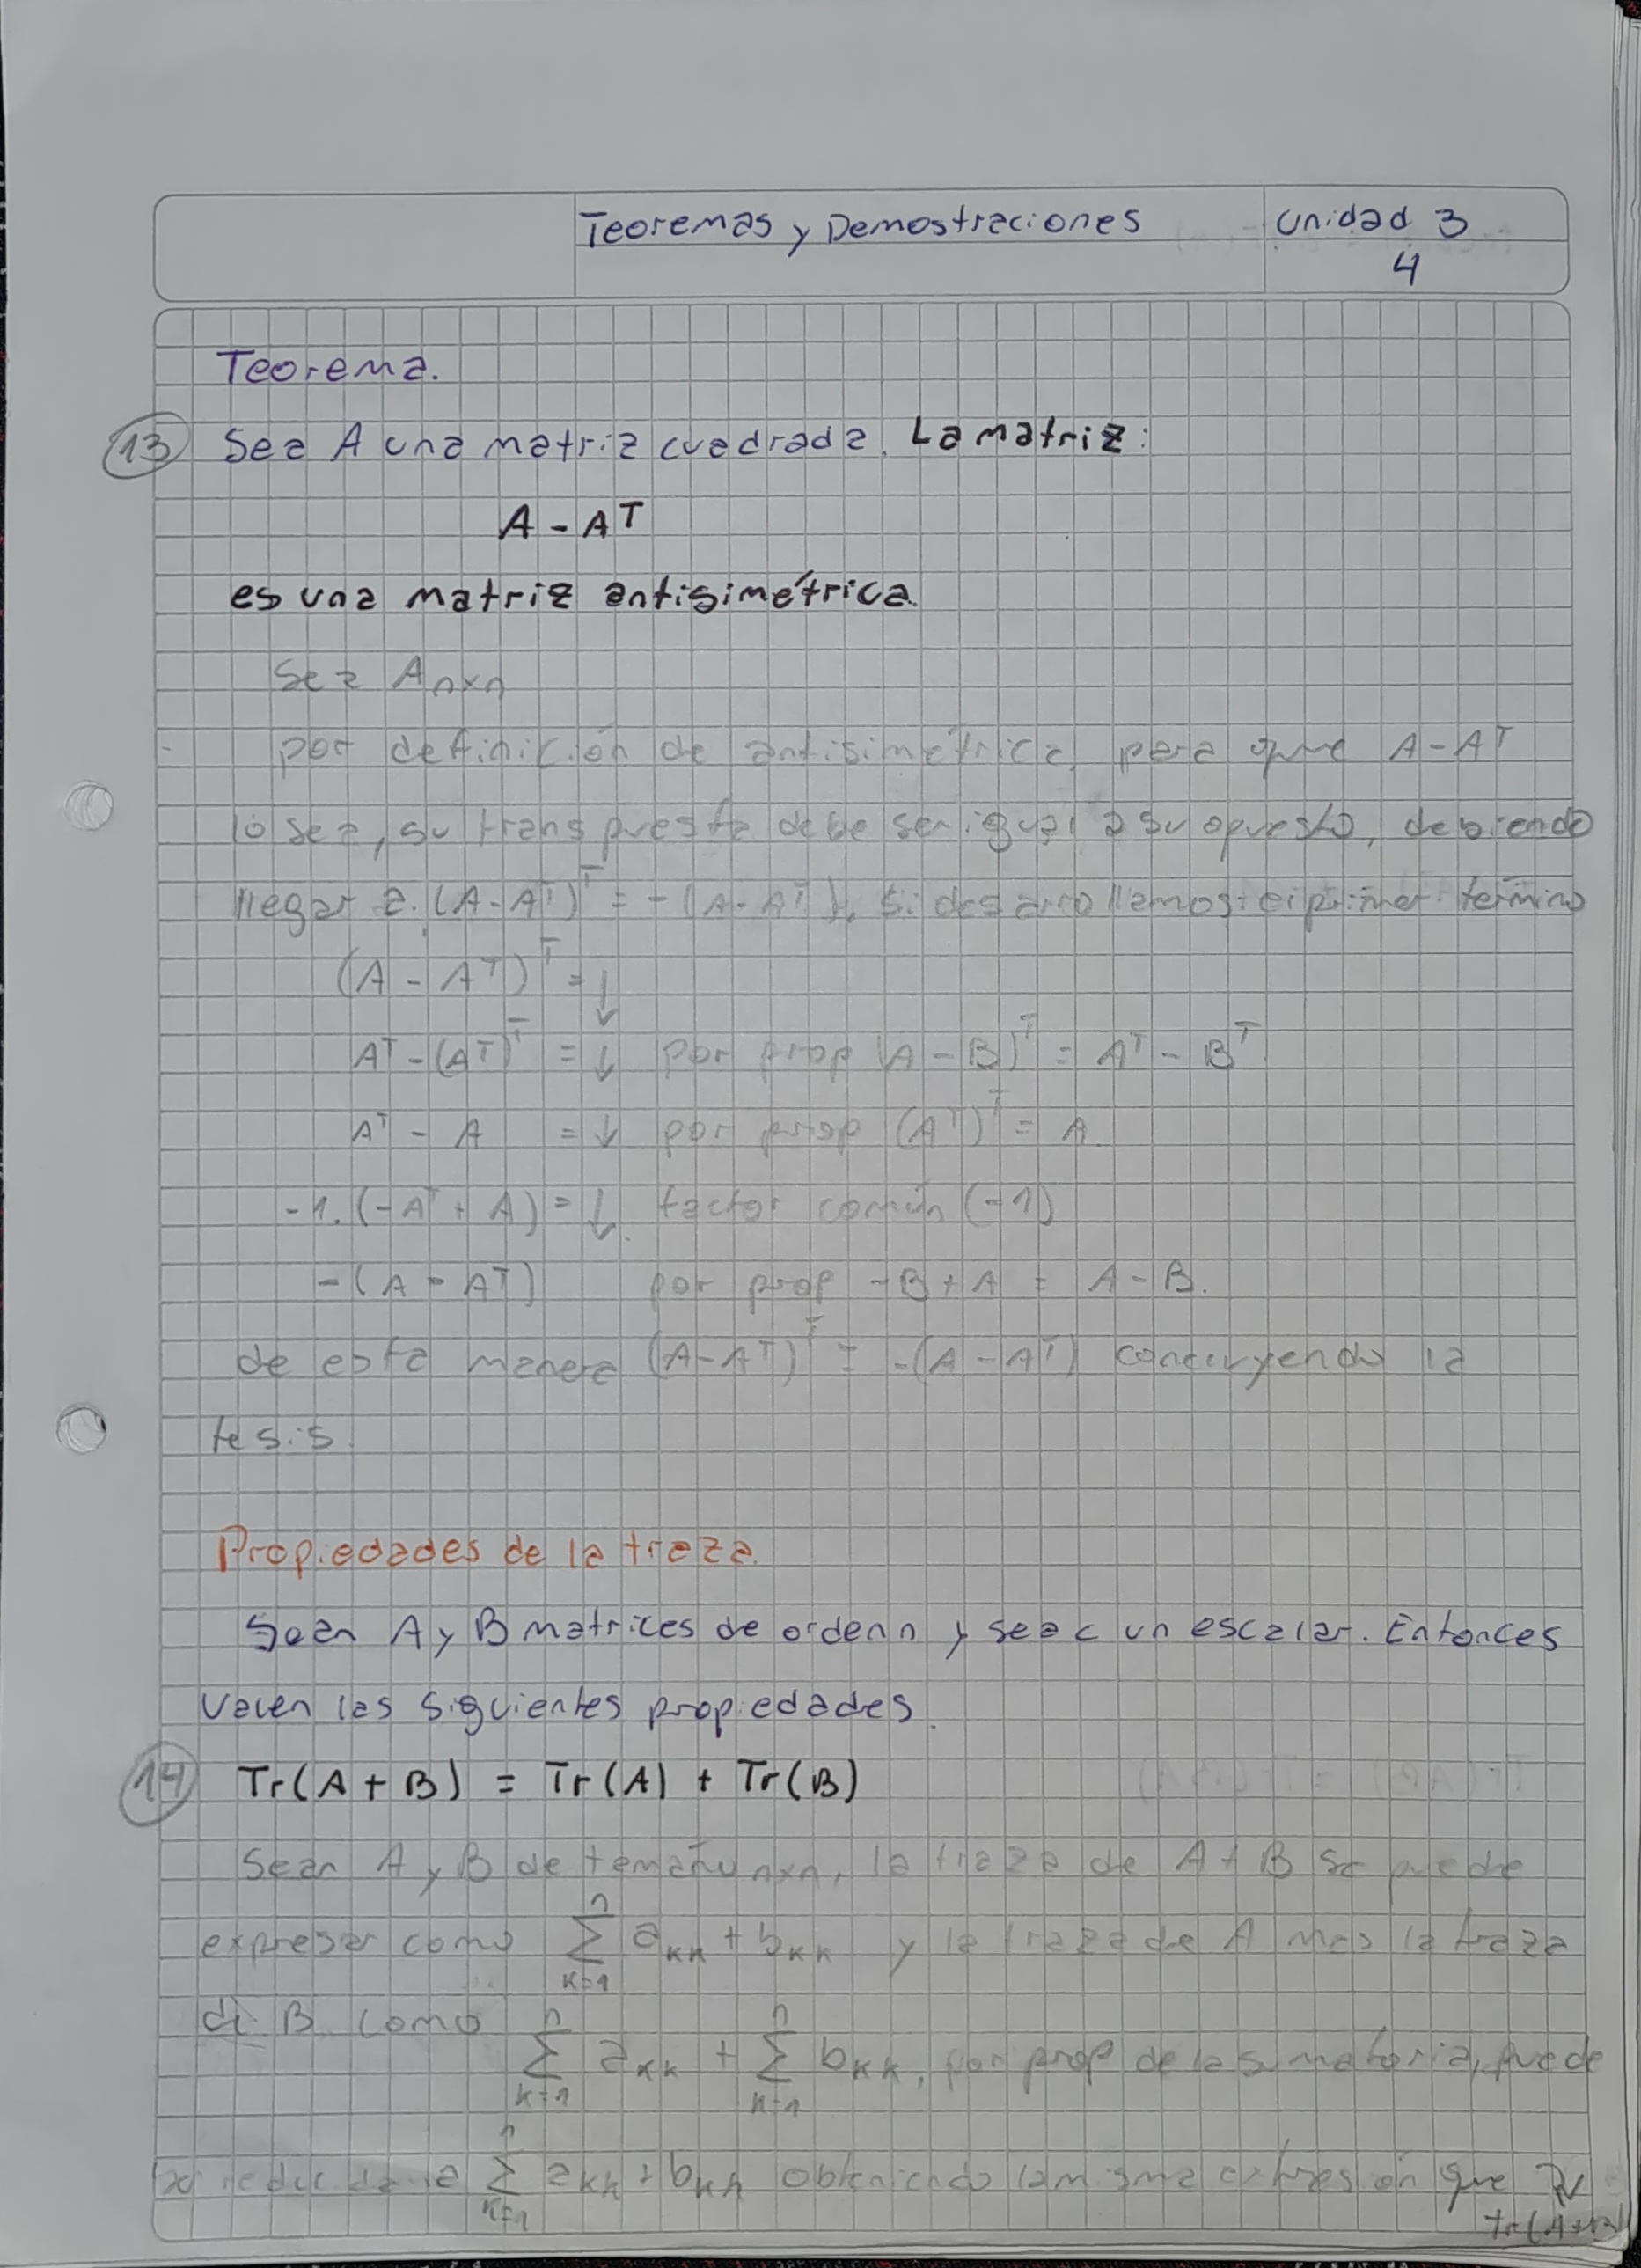 Teoremas y Demostraciones
Unidad 3
4
Teorema.
13 Sea A una matriz cuadrada. La matriz:
A - Aᵀ
es una matriz antisimétrica.
Sea Aₙₓₙ
por definición de antisimétrica, para que A - Aᵀ
lo sea, su transpuesta debe ser igual a su opuesto, debiendo
llegar a: (A - Aᵀ)ᵀ = -(A - Aᵀ), si desarrollamos el primer termino
(A - Aᵀ)ᵀ = ↓
Aᵀ - (Aᵀ)ᵀ = ↓ por prop (A - B)ᵀ = Aᵀ - Bᵀ
Aᵀ - A = ↓ por prop (Aᵀ)ᵀ = A.
-1. (-Aᵀ + A) = ↓ factor común (-1)
-(A - Aᵀ) por prop -B + A = A - B.
de esta manera (A - Aᵀ)ᵀ = -(A - Aᵀ) concluyendo la
tesis.
Propiedades de la traza.
Sean A y B matrices de orden n y sea c un escalar. Entonces
valen las siguientes propiedades.
14 Tr(A + B) = Tr(A) + Tr(B)
Sean A y B de tamaño nxn, la traza de A + B se puede
expresar como ∑ₖ₌₁ⁿ aₖₖ + bₖₖ y la traza de A mas la traza
de B como ∑ₖ₌₁ⁿ aₖₖ + ∑ₖ₌₁ⁿ bₖₖ, por prop de la sumatoria, puede
a ∑ₖ₌₁ⁿ aₖₖ + bₖₖ obteniendo la misma expresión que
tr(A+B)